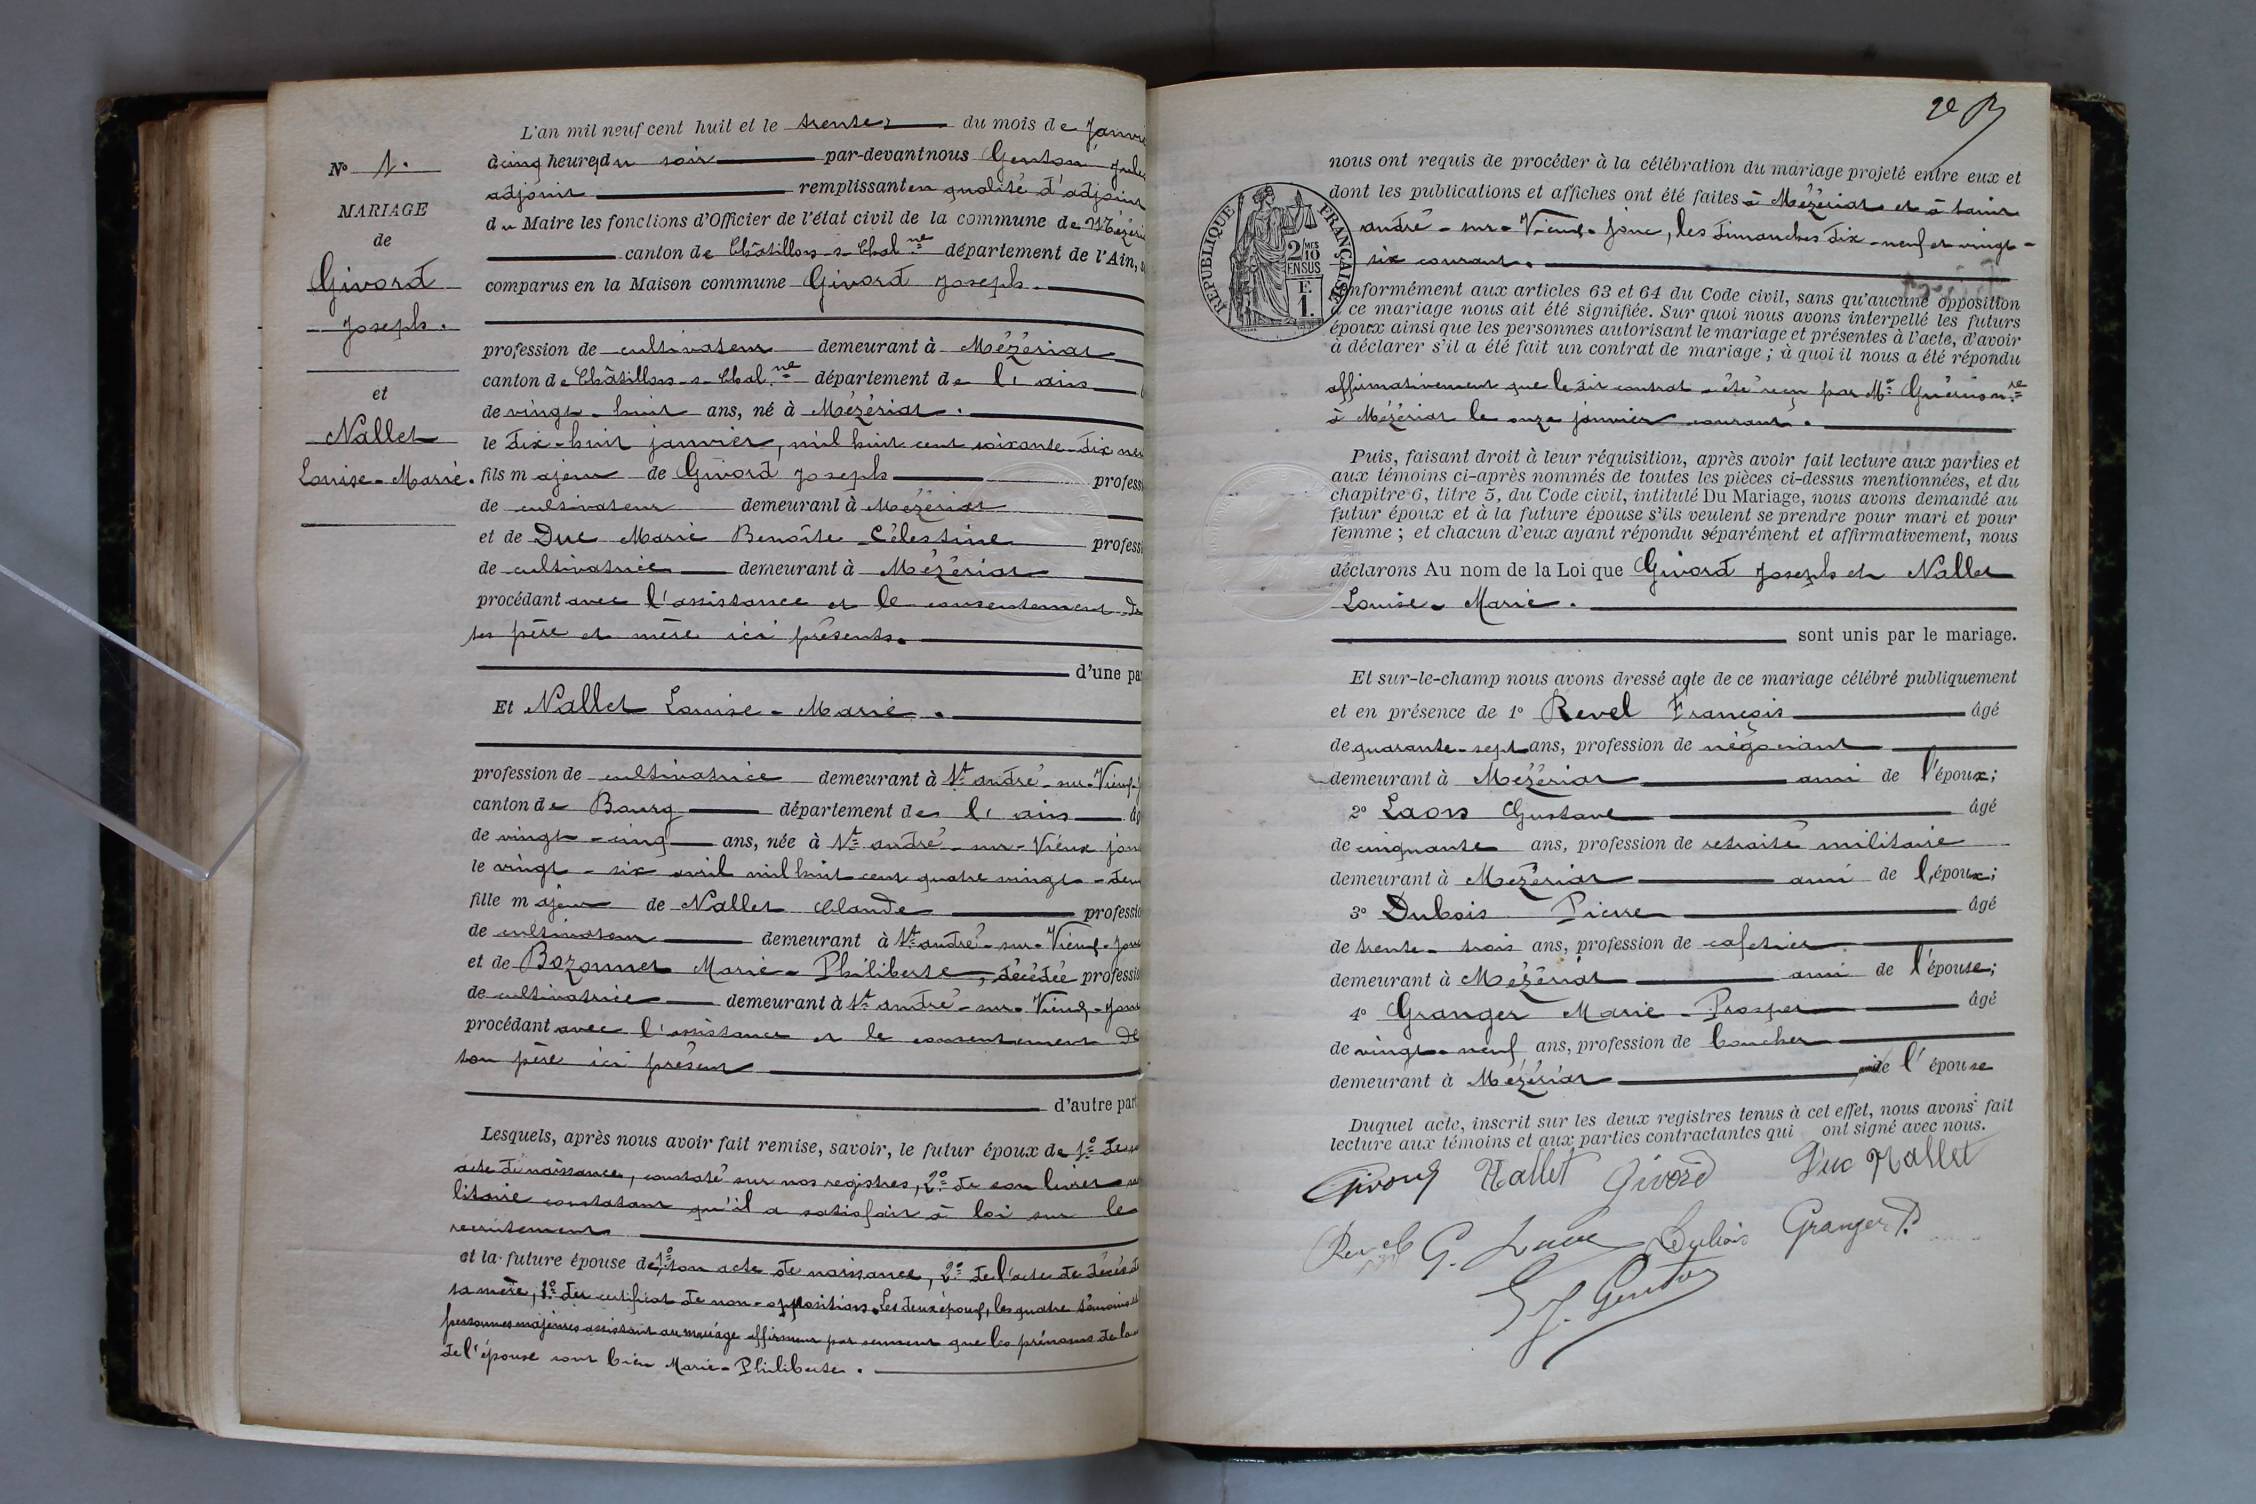 L'an mil neuf cent huit et le trente du mois de Janvie
à cinq heures du soir par-devant nous Genton Jules
adjoint remplissant en qualité d'adjoint
du Maire les fonctions d'Officier de l'état civil de la commune de Mézéri
canton de Châtillon-s-Chal.ne département de l'Ain, s
comparus en la Maison commune Givord Joseph.
profession de cultivateur demeurant à Mézériat
canton de Châtillon-s-Chal.ne département de l'ain
de vingt-huit ans, né à Mézériat.
le dix-huit janvier, mil huit cent soixante-dix neu
fils majeur de Givord Joseph profess
de cultivateur demeurant à Mézériat
et de Duc Marie Benoîte Célestine profess
de cultivatrice demeurant à Mézériat
procédant avec l'assistance et le consentement de
ses père et mère ici présents.
d'une pa
Et Nallet Louise-Marie.
profession de cultivatrice demeurant à St andré-sur-Vieux-j
canton de Bourg département de l'ain âg
de vingt-cinq ans, née à St andré-sur-Vieux jon
le vingt-six avril mil huit cent quatre vingt-deu
fille majeur de Nallet Claude professio
de cultivateur demeurant à St andré-sur-Vieux-Jon
et de Bozonnet Marie-Philiberte, décédée professio
de cultivatrice demeurant à St andré-sur-Vieux-Jon
procédant avec l'assistance et le consentement de
son père ici présent
d'autre part
Lesquels, après nous avoir fait remise, savoir, le futur époux de 1° de
acte de naissance, constaté sur nos registres, 2° de son livret
litaire constatant qu'il a satisfait à loi sur le
recrutement
et la future épouse de 1° son acte de naissance, 2° de l'acte de décès d
sa mère, 3° du certificat de non-opposition. Les deux époux, les quatre témoins et
personnes majeures assistant au mariage affirment par serment que les prénoms de la
de l'épouse sont bien Marie-Philiberte.
N° 1.
MARIAGE
de
Givord
Joseph.
et
Nallet
Louise-Marie.
RÉPUBLIQUE FRANÇAISE
2/10 MES
EN SUS
F.
1.
nous ont requis de procéder à la célébration du mariage projeté entre eux et
dont les publications et affiches ont été faites à Mézériat et à Saint
andré-sur-Vieux-Jonc, les dimanches dix-neuf et vingt-
six courant.
conformément aux articles 63 et 64 du Code civil, sans qu'aucune opposition
à ce mariage nous ait été signifiée. Sur quoi nous avons interpellé les futurs
époux ainsi que les personnes autorisant le mariage et présentes à l'acte, d'avoir
à déclarer s'il a été fait un contrat de mariage ; à quoi il nous a été répondu
affirmativement que le dit contrat a été reçu par Me Guérin n.re
à Mézériat le onze janvier courant.
Puis, faisant droit à leur réquisition, après avoir fait lecture aux parties et
aux témoins ci-après nommés de toutes les pièces ci-dessus mentionnées, et du
chapitre 6, titre 5, du Code civil, intitulé Du Mariage, nous avons demandé au
futur époux et à la future épouse s'ils veulent se prendre pour mari et pour
femme ; et chacun d'eux ayant répondu séparément et affirmativement, nous
déclarons Au nom de la Loi que Givord Joseph et Nallet
Louise-Marie.
sont unis par le mariage.
Et sur-le-champ nous avons dressé acte de ce mariage célébré publiquement
et en présence de 1° Revel François âgé
de quarante-sept ans, profession de négociant
demeurant à Mézériat ami de l'époux;
2° Laons Gustave âgé
de cinquante ans, profession de retraité militaire
demeurant à Mézériat ami de l'époux;
3° Dubois Pierre âgé
de trente-trois ans, profession de cafetier
demeurant à Mézériat ami de l'épouse;
4° Granger Marie-Prosper âgé
de vingt-neuf ans, profession de boucher
demeurant à Mézériat de l'épouse
Duquel acte, inscrit sur les deux registres tenus à cet effet, nous avons fait
lecture aux témoins et aux parties contractantes qui ont signé avec nous.
Givord Nallet Givord Duc Nallet
Revel G. Dubois Granger P.
J. Genton